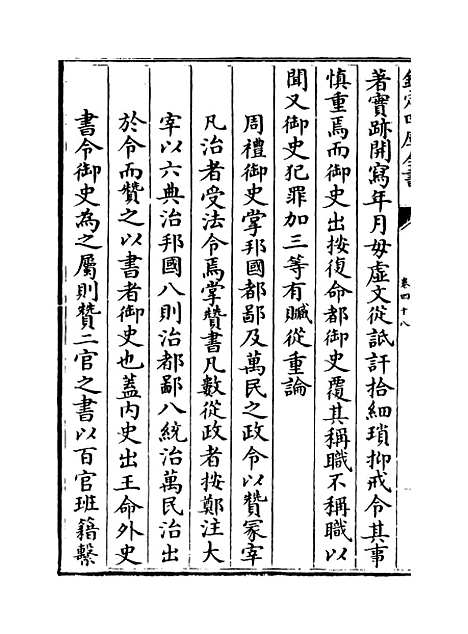 欽定四庫全書
卷四十八
著實跡開寫年月毋虛文從詆訐拾細瑣抑戒令其事
慎重焉而御史出按復命都御史覆其稱職不稱職以
聞又御史犯罪加三等有贓從重論
周禮御史掌邦國都鄙及萬民之政令以贊冢宰
凡治者受法令焉掌贊書凡數從政者按鄭注大
宰以六典治邦國八則治都鄙八統治萬民治出
於令而贊之以書者御史也蓋內史出王命外史
書令御史為之屬則贊二官之書以百官班籍繫